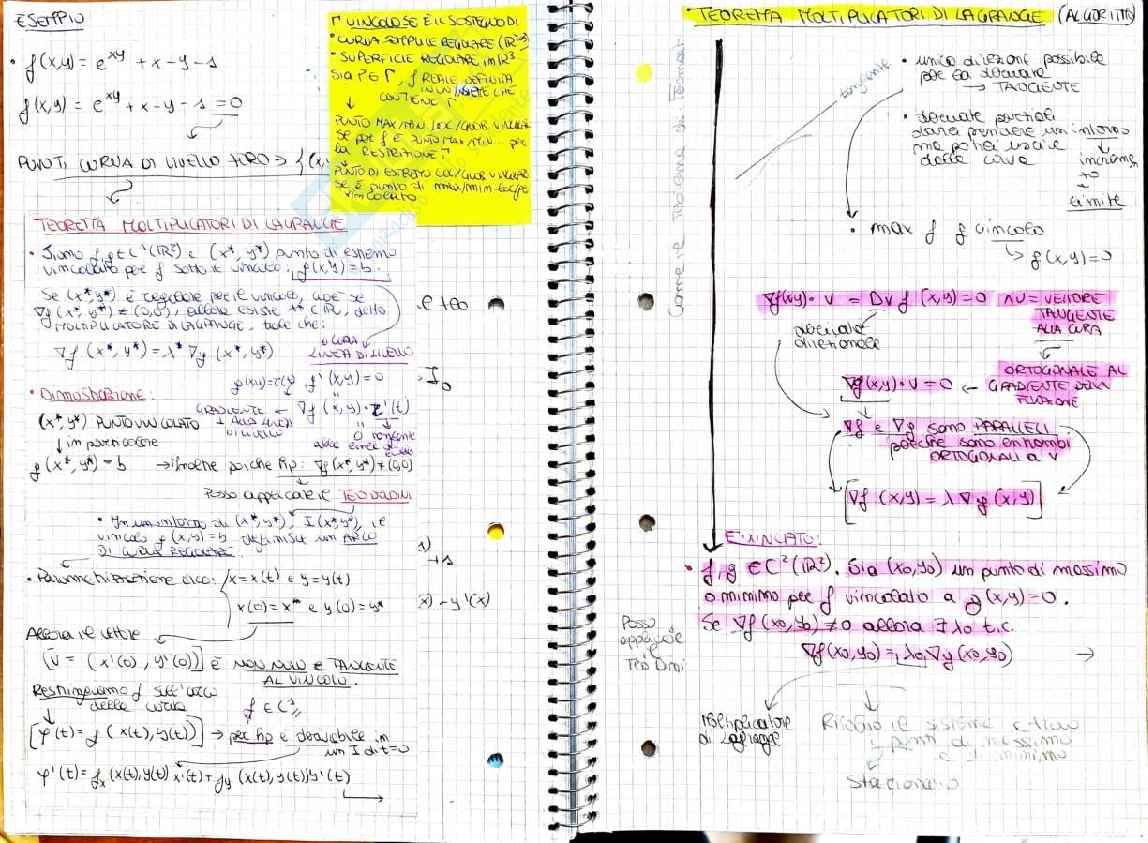 ESEMPIO
• f(x,y) = e^xy + x - y - 1
f(x,y) = e^xy + x - y - 1 = 0
PUNTI CURVA DI LIVELLO ZERO => {(x,
Γ VINCOLO SE È IL SOSTEGNO DI
• CURVA SEMPLICE REGOLARE (R²,³)
• SUPERFICIE REGOLARE in R³
SIA P ∈ Γ, f REALE DEFINITA
IN UN INSIEME CHE
CONTIENE Γ
↓
PUNTO MAX/MIN LOC/GLOB VINCOLATO
se per f è PUNTO MAX/MIN... per
LA RESTRIZIONE Γ
↓
PUNTO DI ESTREMO LOC/GLOB VINCOLATO
se è punto di max/min loc/glob
vincolato
TEOREMA MOLTIPLICATORI DI LAGRANGE
• Siano f,g ∈ C¹(R²) e (x*, y*) punto di estremo
vincolato per f sotto il vincolo: g(x,y) = b.
Se (x*, y*) è regolare per il vincolo, cioè se
∇g (x*, y*) ≠ (0,0), allora esiste λ* ∈ R, detto
MOLTIPLICATORE DI LAGRANGE, tale che:
∇f (x*, y*) = λ* ∇g (x*, y*)
CURVA
LINEA DI LIVELLO
f'(x,y) = 0
• Dimostrazione:
GRADIENTE ← ∇f (x, y) · r'(t)
⊥ ALLA LINEA
DI LIVELLO
(x*, y*) PUNTO VINCOLATO
↓ in particolare
g (x*, y*) = b → inoltre poiché hp: ∇g (x*, y*) ≠ (0,0)
Posso applicare il TEO DINI
• In un intorno di (x*, y*), I(x*, y*), il
vincolo g(x,y) = b definisce un ARCO
DI CURVA REGOLARE.
• Parametrizzazione arco: x = x(t) e y = y(t)
x(0) = x* e y(0) = y*
Allora il vettore
[v = (x'(0), y'(0))] È NON NULLO E TANGENTE
AL VINCOLO.
Restringiamo f sull'arco
della curva
f ∈ C¹
[φ(t) = f (x(t), y(t))] → per hp è derivabile in
un I di t=0
φ'(t) = fx (x(t), y(t)) x'(t) + fy (x(t), y(t)) y'(t)
e teo
I0
1)
+1
x) - y'(x)
• TEOREMA MOLTIPLICATORI DI LAGRANGE (ALGORITMO)
Come il Teorema di Fermat
tangente
• unica direzione possibile
per la derivata
→ TANGENTE
• derivate parziali
dovrei prendere un intorno
ma potrei uscire
dalla curva
↓
incremen
to
↓
limite
• max f g vincolo
↳ g(x,y) = 0
∇f(x,y) · v = Dv f (x,y) = 0
derivata
direzionale
∧ v = VETTORE
TANGENTE
ALLA CURVA
↓
ORTOGONALE AL
GRADIENTE DELLA
FUNZIONE
∇g(x,y) · v = 0 ←
∇f e ∇g sono PARALLELI
perché sono entrambi
ORTOGONALI a v
[∇f (x,y) = λ ∇g (x,y)]
ENUNCIATO:
• f, g ∈ C²(R²). Sia (x0,y0) un punto di massimo
o minimo per f vincolato a g(x,y) = 0.
Se ∇f(x0,y0) ≠ 0 allora ∃ λ0 t.c.
∇f(x0,y0) = λ0 ∇g(x0,y0) →
Posso
applicare
il
Teo Dini
Moltiplicatore
di Lagrange
Risolvo il sistema e trovo
i punti di massimo
e di minimo
↓
stazionario